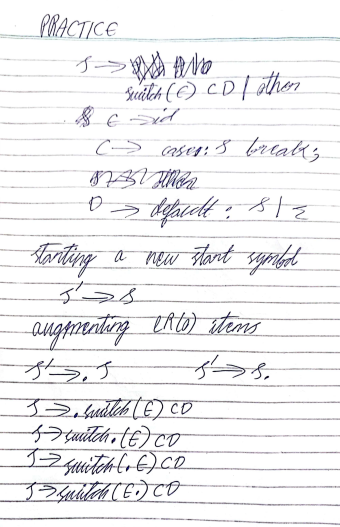 PRACTICE
S →
switch(E) CD | other
E → id
C → case n: S break;
D → default : S | ε
starting a new start symbol
S' → S
augmenting LR(0) items
S' → . S S' → S.
S → . switch(E) CD
S → switch . (E) CD
S → switch (. E) CD
S → switch (E.) CD